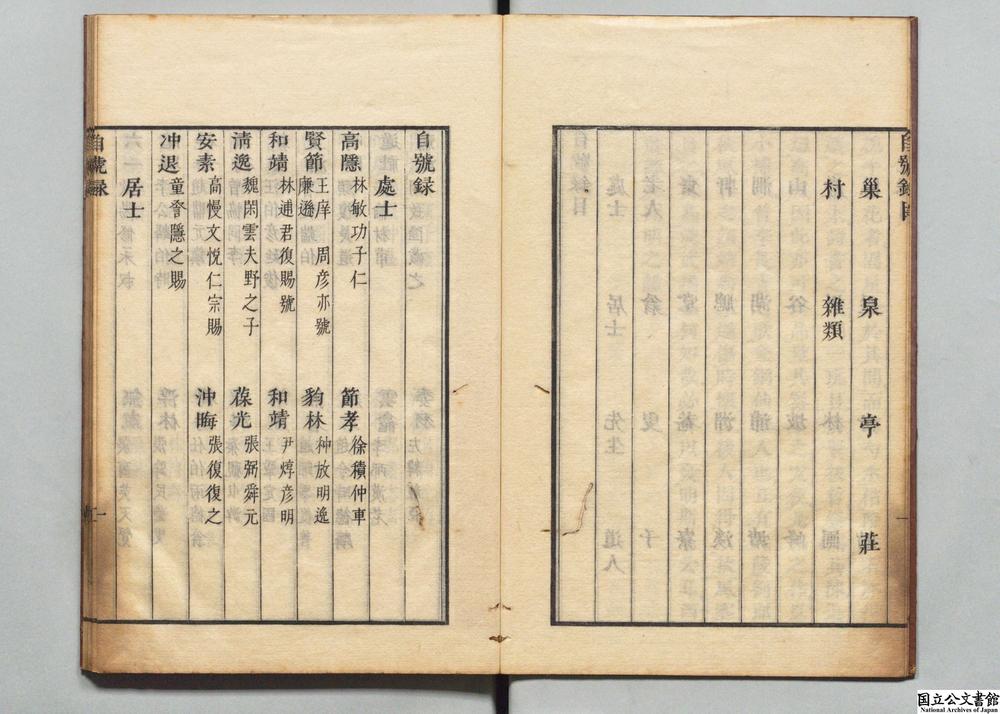 巢 泉 亭 莊
村 雜類
自號録
處士
高隱 林敏功子仁 節孝 徐積仲車
賢節 王庠 周彦亦號 廉遜 豹林 种放明逸
和靖 林逋君復賜號 和靖 尹焞彦明
清逸 魏閑雲夫野之子 葆光 張弼舜元
安素 高懌文悅仁宗賜 沖晦 張復復之
冲退 童隱之賜
居士
自號録 一
国立公文書館
National Archives of Japan